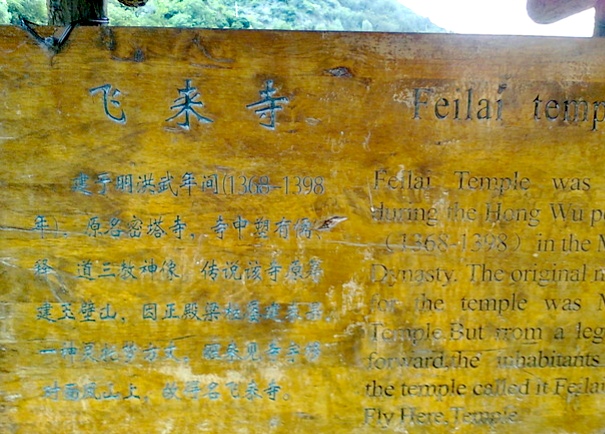 飞来寺
建于明洪武年间(1368-1398
年)。原名密塔寺。寺中塑有儒、
释、道三教神像。传说该寺原
建 壁山，因正殿梁
一神 方丈，
对面凤山上，故得名飞来寺。
Feilai temp
Feilai Temple was
during the Hong Wu p
(1368-1398) in the M
Dynasty. The original n
for the temple was M
Temple.But from a leg
forward,the inhabitants
the temple called it Feilai
Fly Here,Temple